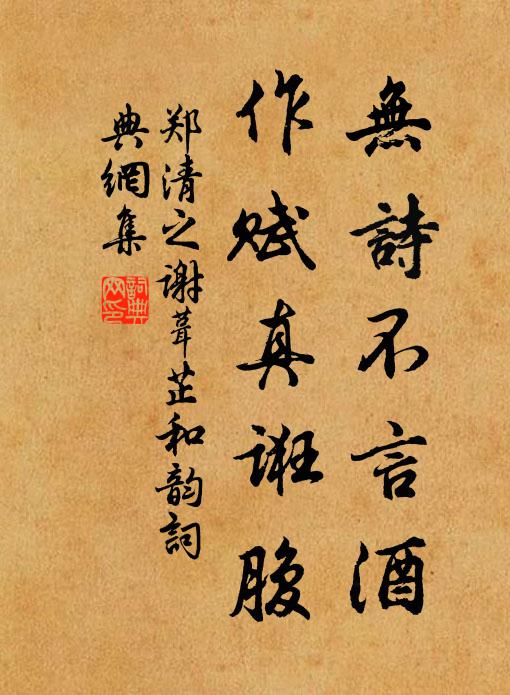 無詩不言酒
作赋真诳腹
郑清之谢葺芷和韵詞
典網集
詞典网印